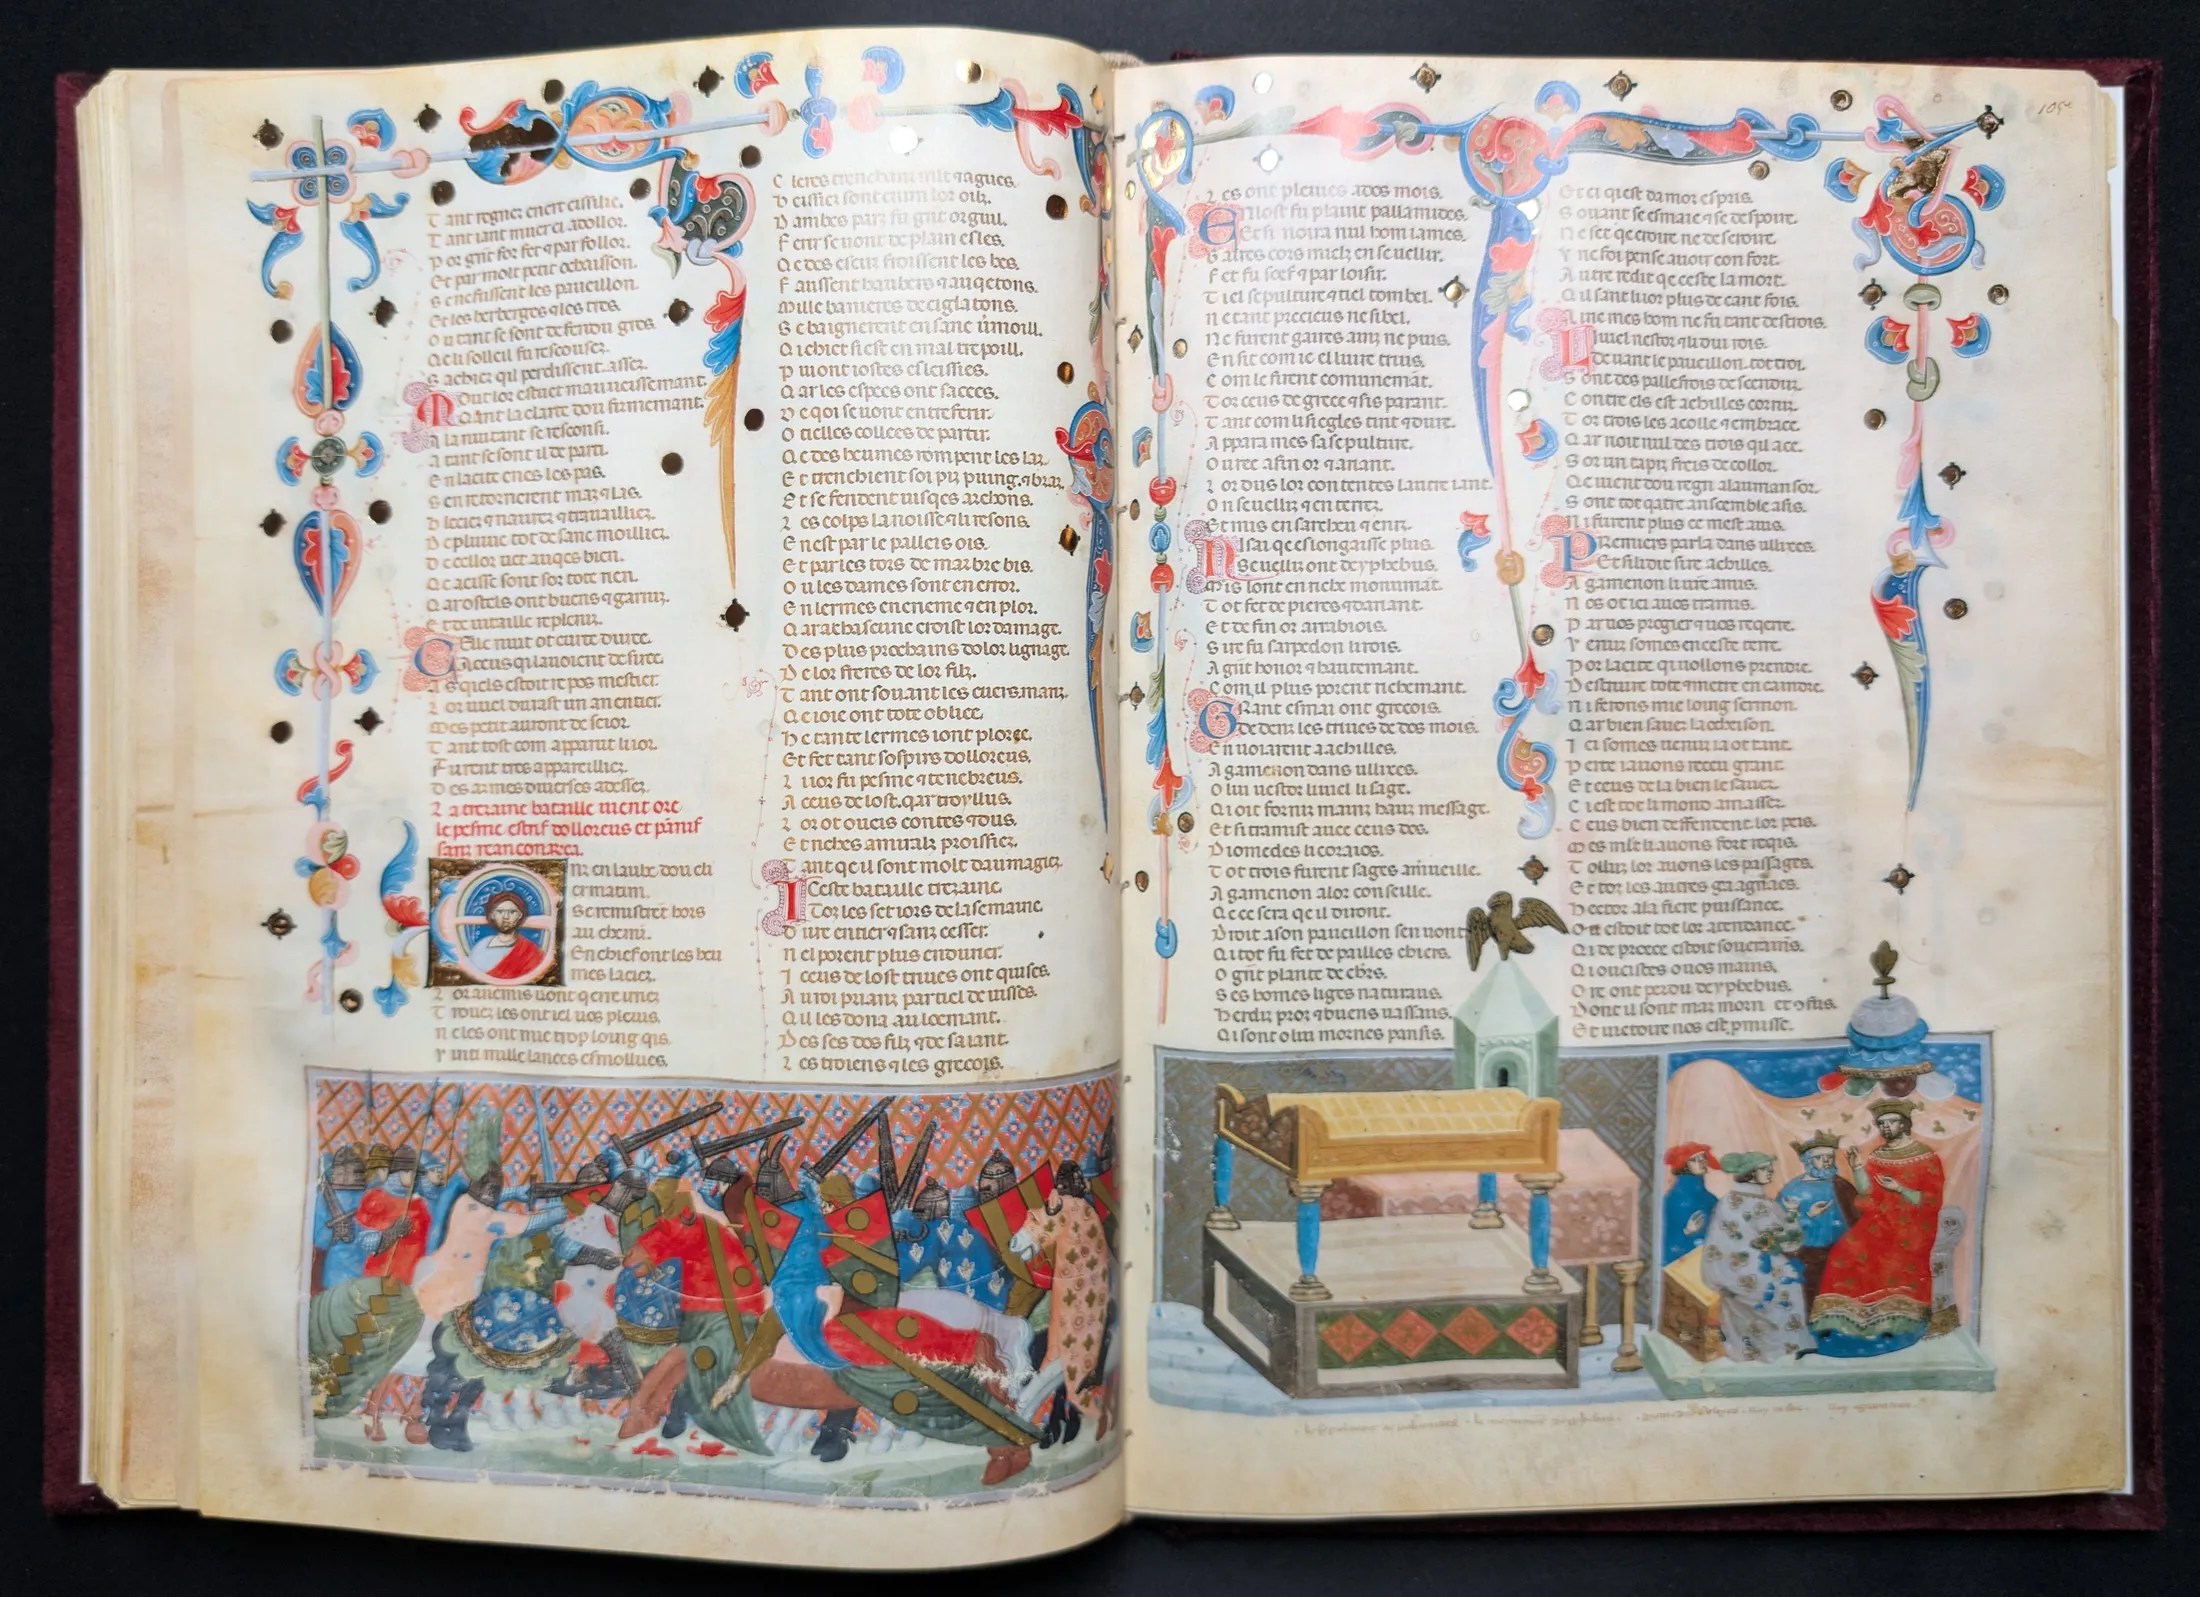 T ant regnez en ert eissilie.
T ant iant muert et adollor.
P or grant forfet q par follor.
Et par molt petit ochaison.
S enefussent les paueillon.
Et les herberges q les tres.
O u tant se sont defendu gres
Q e li solleil fu rescousez.
S achiez qil perdissent assez.
M Out lor estuet mauueissemant.
Q Ant la clarte dou firmemant.
A la nuitant se resconsi.
A tant se sont il de parti.
E n lacite en es les pas.
S en retornerent maz q las.
B lecier q naurez q trauaillier.
D e pluuie tot de sanc moillier.
D e cellor uet auqes bien.
Q e aeisse sont sor tote rien.
Q ar ostels ont buens q garniz.
E t de uitaille repleniz.
C Elle nuit ot curte duree.
A Aceus qi lauoient desiree.
A s quels estoit repos mestier.
L or uuel durast un an entier.
M es petit auront de seior.
T ant tost com apparut li ior.
F urent tres appareillie.
D es armes diuerses adesser.
La trezaine bataille uient ore
le pesme estrif dollereus et panif
sanz reanconzea.
E nz en laube dou cli
er matin.
Se remistrent hors
au chemi.
En chief ont les heu
mes laciez.
L or anemis uont qerre unez
T rouez les ont iel uos pleuis.
N e les ont mie trop loing qis.
V int mille lances esmollues.
C leres trenchant mlt q agues.
D eissiez sont enim lor oilz.
D ambes parz fu grant orguil.
F erir se uont de plain esles.
Q e des escuz froissent les hes.
F aussent hauberz q auqetons.
M ille banieres de ciglatons.
S e baignerent en sanc uimoill.
Q i chiet si est en mal trepoill.
P uis ont iostes esleissies.
Q ar les espees ont sacees.
D e qoi se uont entreferir.
O tielles collees de partir.
Q e des heumes rompent les laz.
E t trenchient soi piz puing. q braz.
E t se fendent iusqes archons.
L es colps la noisse q li resons.
E n est par le palleis ois.
E t par les tors de marbre bis.
O u les dames sont en error.
E n lermes en creme q en plor.
Q ar a chascune croist lor damage.
D es plus prochains do lor lignage.
D e lor freres de lor filz.
T ant ont souant les cuers marriz.
Q e ioie ont tote obliee.
D e tante lermes iont ploree.
Et fet tant sospirs dollereus.
L i ior fu pesme q tenebreus.
A ceus de lost. qar troyllus.
L or ot oucis contes q dus.
E t riches amiralz proissiez.
T ant qe il sont molt daumagiez.
I Ceste bataille trezaine.
Toz les set iors de la semaine.
D ure entier q sanz cesser.
N el porent plus endurer.
I ceus de lost triues ont quises.
A u roi prianz par tiel de uisses.
Q il les dona au loemant.
D es ses dos filz q de sa iant.
L es troiens q les grezois.
L es ont pleuies ados mois.
E N lost fu plaint pallamides.
E t si noira nul hom iames.
G aires cors mielz enseuellir.
F et fu soef q par loisir.
T iel sepulture q tiel tombel.
N e tant precieus ne si bel.
N e furent gaires anz ne puis.
E n fit com ie el liure truis.
C om le firent comunemant.
T or ceus de grece q sis parant.
T ant com li siegles tint q dure.
A pparames sa sepulture.
O uree a fin or q ariant.
L or dus lor contentes lautre iant.
O nseuelliz q enterrez.
Et mis en sarchu q enz.
N I sai qe si longaisse plus.
N Seuelliz ont deyphebus.
M is lont en riche monumant.
T ot fet de pieres q dariant.
E t de fin or arrabiois.
S ire fu sarpedon li rois.
A grant honor q hautemant.
C om il plus porent richemant.
G Rant esmai ont grezois.
De denz les triues de dos mois.
E n uoiarent a achilles.
A gamenon dans ullixes.
O lui nestor li uiel li sage.
Q i oit forniz mainz hauz messages.
E t si tramist auec ceus dos.
D iomedes li corazos.
T ot trois furent sages amueille.
A gamenon a lor conseille.
Q e ce sera qe il diront.
D roit a son paueillon sen uont
Q i tot fu fet de pailles chiers.
O grant plante de chrs.
S es homes liges naturaus.
H erdiz proz q buens uassaus.
Q i sont o lui mornes pansis.
E t ci qi est damor espris.
S ouant se esmaie q se despoire.
N e set qe croire ne descroire.
Y ne soi pense auoir confort.
A utre redit qe ceste la mort.
Q il sant li ior plus de cant fois.
A ine mes hom ne fu tant destrois.
L I uiel nestor q li dui rois.
De uant le paueillon. tot troi.
S ont des pallefrois descenduz.
C ontre els est achilles coruz.
T oz trois les acolle q embrace.
Q ar noit nul des trois qi ace.
S or un tapiz freis de collor.
Q e uient dou regn alaumansor.
S ont tot qatre anscemble asis.
N i furent plus ce mest auis.
P Remiers parla dans ullixes.
E t si li dit sire achilles.
A gamenon li uostre amis.
N os ot ici a uos tramis.
P ar uos progier q uos reqerre.
V enuz somes en ceste terre.
P or la cite qi uollons prendre.
D estruire tote q metre en cendre.
N i ferons mie loing sermon.
Q ar bien sauez la ochaison.
I ci somes uenuz ia ot tant.
P erte iauons receu grant.
E t ceus de la bien le sauez.
C i est tot li mond amassez.
C eus bien deffendent lor peis.
M es mlt li auons fort reqis.
T ollir lor auons les passages.
E t toz les autres gaagnaies.
H ector a la fiere puissance.
Ou estoit tot lor atendance.
Q i de proece estoit souerains.
Q i oucistes o uos mains.
O re ont perdu deyphebus.
D ont il sont maz morn et confus.
E t uictoire nos est pmisse.